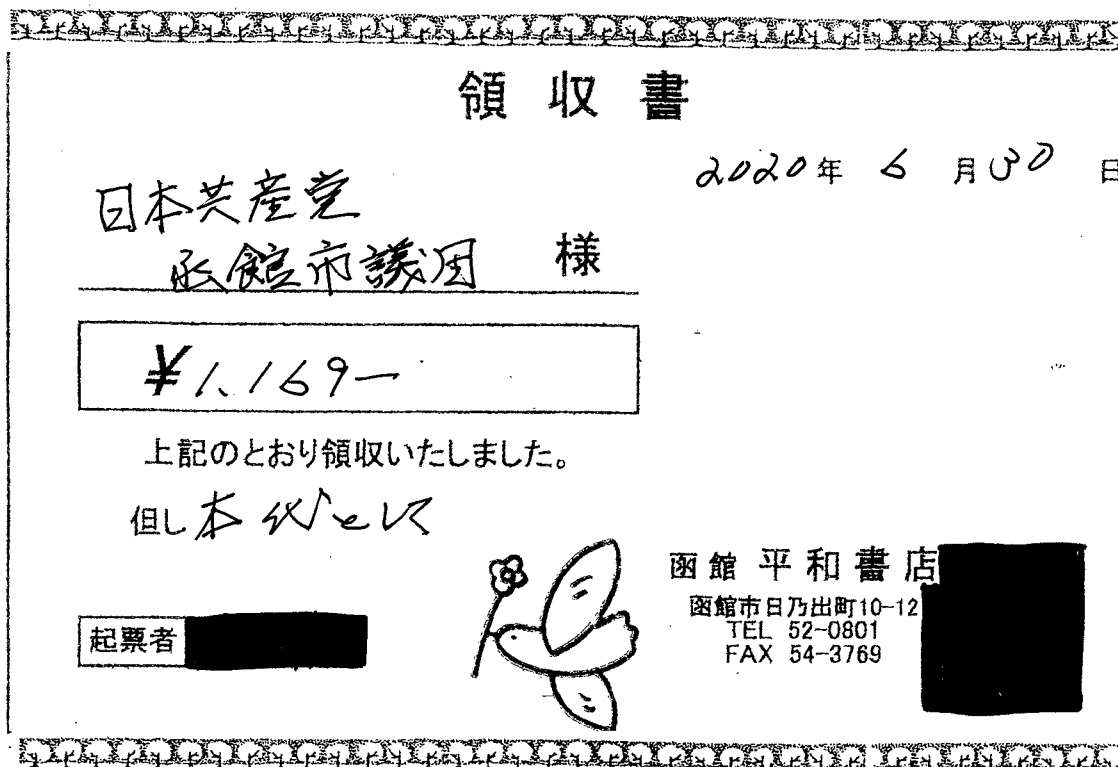 領収書
2020年 6月30日
日本共産党
函館市議団 様
¥1,169-
上記のとおり領収いたしました。
但し本代として
函館 平和書店
函館市日乃出町10-12
TEL 52-0801
FAX 54-3769
起票者